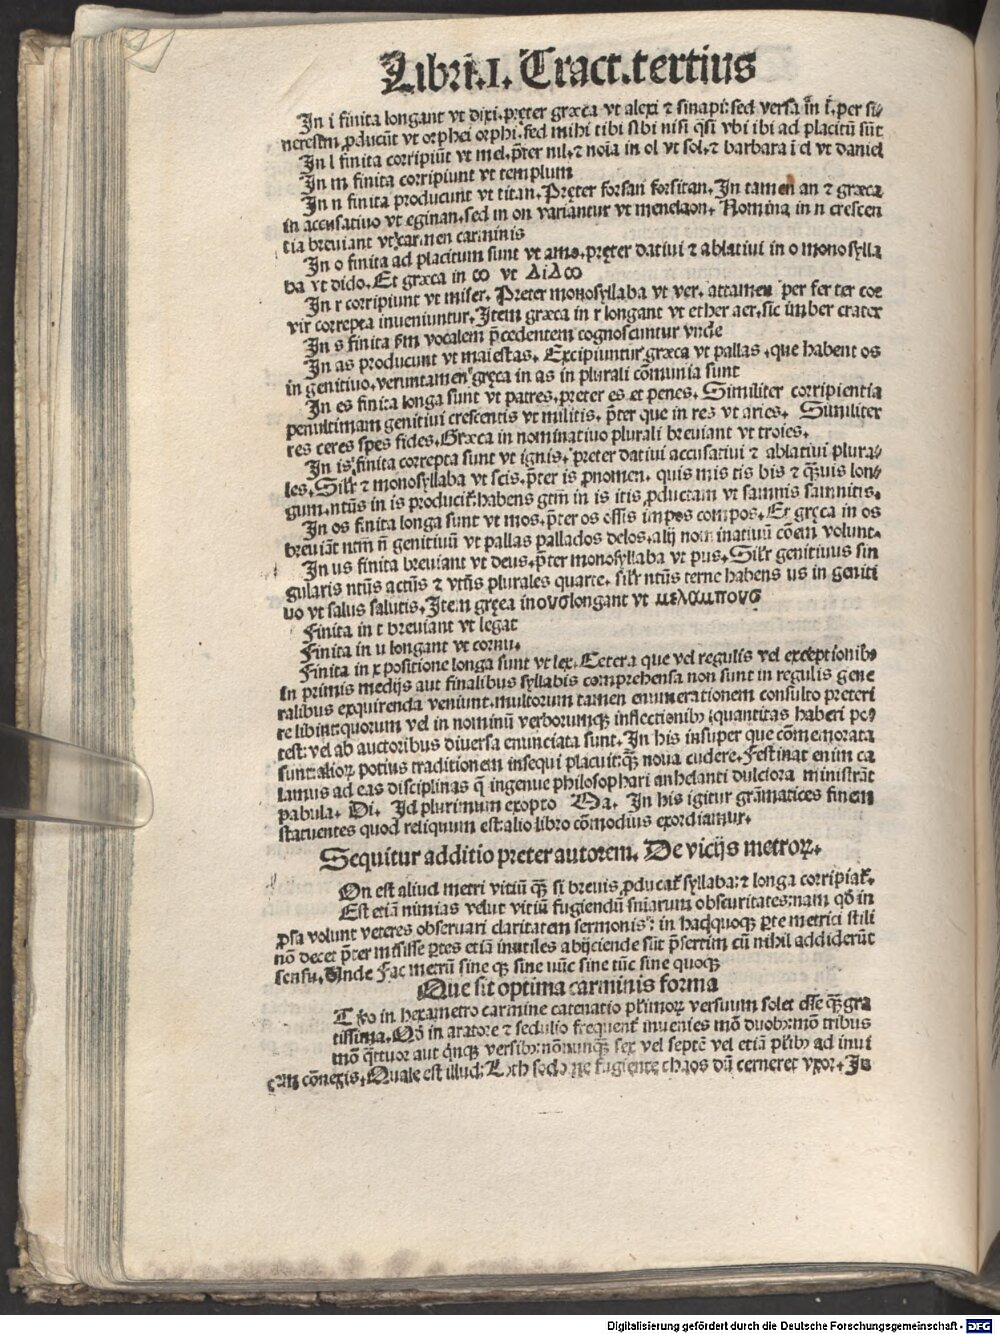 Libri.I. Tract.tertius
In i finita longant vt dixi.pręter græca vt alexi ⁊ sinapi:sed versa in ĩ.per si⸗
neresim ꝓducũt vt orphei orphi.sed mihi tibi sibi nisi qͣsi vbi ibi ad placitũ sũt
In l finita corripiũt vt mel.p̃ter nil.⁊ noĩa in ol vt sol.⁊ barbara ĩ el vt daniel
In m finita corripiunt vt templum
In n finita producunt vt titan. Pręter forsan forsitan. In tamen an ⁊ græca
in accusatiuo vt eginan.sed in on variantur vt menelaon. Nomina in n crescen
tia breuiant vt carmen carminis
In o finita ad placitum sunt vt amo.pręter datiui ⁊ ablatiui in o monosylla
ba vt dido. Et græca in ω vt ΔιΔω
In r corripiunt vt miser. Preter monosyllaba vt ver. attamen per fer ter cor
vir correpta inueniuntur. Item græca in r longant vt ether aer.sic imber crater
In s finita ẜm vocalem p̃cedentem cognoscuntur vnde
In as producunt vt maiestas. Excipiuntur græca vt pallas .que habent os
in genitiuo.veruntamen gręca in as in plurali cõmunia sunt
In es finita longa sunt vt patres.preter es et penes. Similiter corripientia
penultimam genitiui crescentis vt militis. p̃ter que in res vt aries. Similiter
res ceres spes fides. Græca in nominatiuo plurali breuiant vt troies.
In is finita correpta sunt vt ignis. preter datiui accusatiui ⁊ ablatiui plura⸗
les. Sil̃r ⁊ monosyllaba vt scis.p̃ter is ꝓnomen. quis mis tis bis ⁊ qͣ̃uis lon⸗
gum.ntũs in is produciť:habens gtm̃ in is itis ꝓductam vt samnis samnitis.
In os finita longa sunt vt mos.p̃ter os ossis impos compos. Et gręca in os
breuiãt ntm̃ ñ genitiuũ vt pallas pallados delos.alij nominatiuũ cõem volunt.
In us finita breuiant vt deus.p̃ter monosyllaba vt pus. Sil̃r genitiuus sin
gularis ntũs actũs ⁊ vtũs plurales quarte. sil̃r ntũs terne habens us in geniti
uo vt salus salutis. Item gręca in ουσ longant vt μελαμπουσ
Finita in t breuiant vt legat
Finita in u longant vt cornu.
Finita in x positione longa sunt vt lex. Cetera que vel regulis vel exceptionibꝰ
in primis medijs aut finalibus syllabis comprehensa non sunt in regulis gene
ralibus exquirenda veniunt.multorum tamen enumerationem consulto preteri
re libint:quorum vel in nominũ verborumqꝫ inflectionibꝰ quantitas haberi po⸗
test: vel ab auctoribus diuersa enunciata sunt. In his insuper que cõmemorata
sunt:alioꝝ potius traditionem insequi placuit:qͣ̃ noua cudere. Festinat enim ca
lamus ad eas disciplinas q̃ ingenue philosophari anhelanti dulciora ministrãt
pabula. Di. Id plurimum exopto Ma. In his igitur grãmatices finem
statuentes quod reliquum est:alio libro cõmodius exordiamur.
Sequitur additio preter autorem. De vicijs metroꝝ.
On est aliud metri vitiũ qͣ̃ si breuis ꝓducať syllaba:⁊ longa corripiať.
Est etiã nimias velut vitiũ fugiendũ sniarum obscuritates:nam qd̃ in
ꝓsa volunt veteres obseruari claritatem sermonis: in hac quoqꝫ ꝑte metrici stili
nõ decet p̃ter misisse ꝑtes etiã inutiles abijciende sũt p̃sertim cũ nihil addiderũt
sensu. Unde Fac metrũ sine qꝫ sine nũc sine tũc sine quoqꝫ
Que sit optima carminis forma
T ꝟo in hexametro carmine catenatio pl̃imoꝝ versuum solet esse qͣ̃ gra
tissima. Qd̃ in aratore ⁊ sedulio frequenť inuenies mõ duobꝰ:mõ tribus
mõ qͣttuor aut qͥnqꝫ versibꝰ:nõnunqͣ̃ sex vel septẽ vel etiã pl̃ibꝰ ad inui
cem cõnexis. Quale est illud: Loth sodomę fugiente chaos dũ cerneret vxor. In
Digitalisierung gefördert durch die Deutsche Forschungsgemeinschaft - DFG